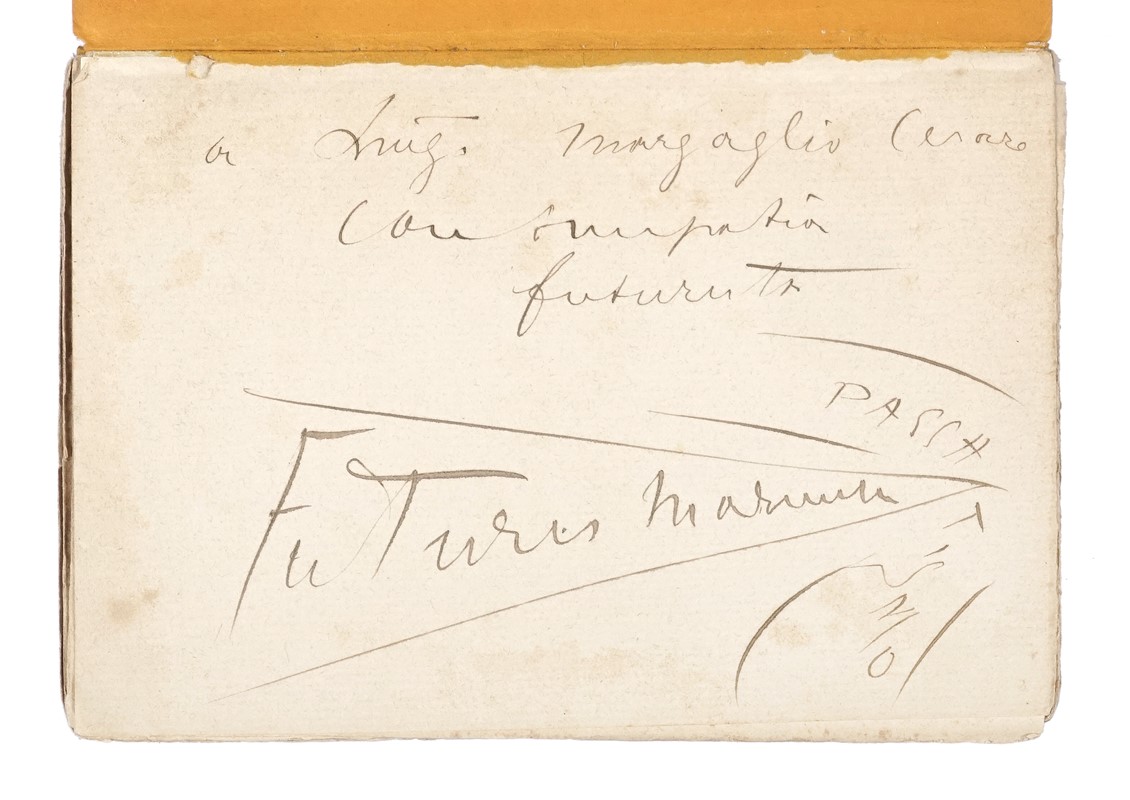 a Luigi Margaglio Cesare
con simpatia
futurista
PASSATISMO
FuTuris Marinetti